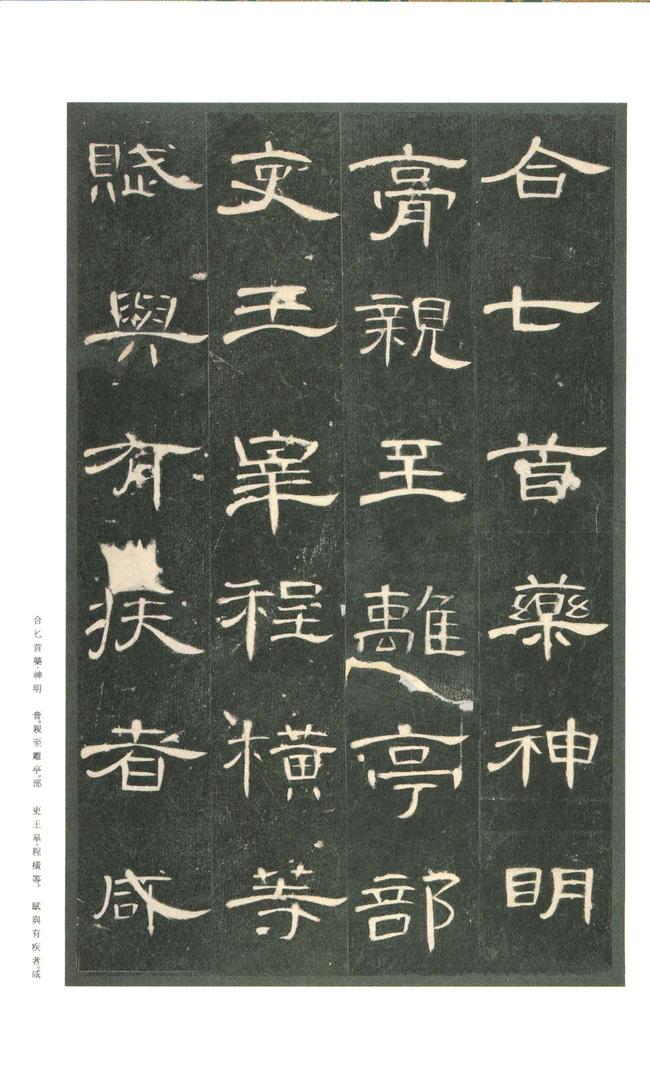 合七首藥神明
膏親至離亭部
吏王皋程橫等
賦與有疾者咸
合匕首藥·神明　膏。親至離亭。部　吏王皋·程橫等。　賦與有疾者。咸